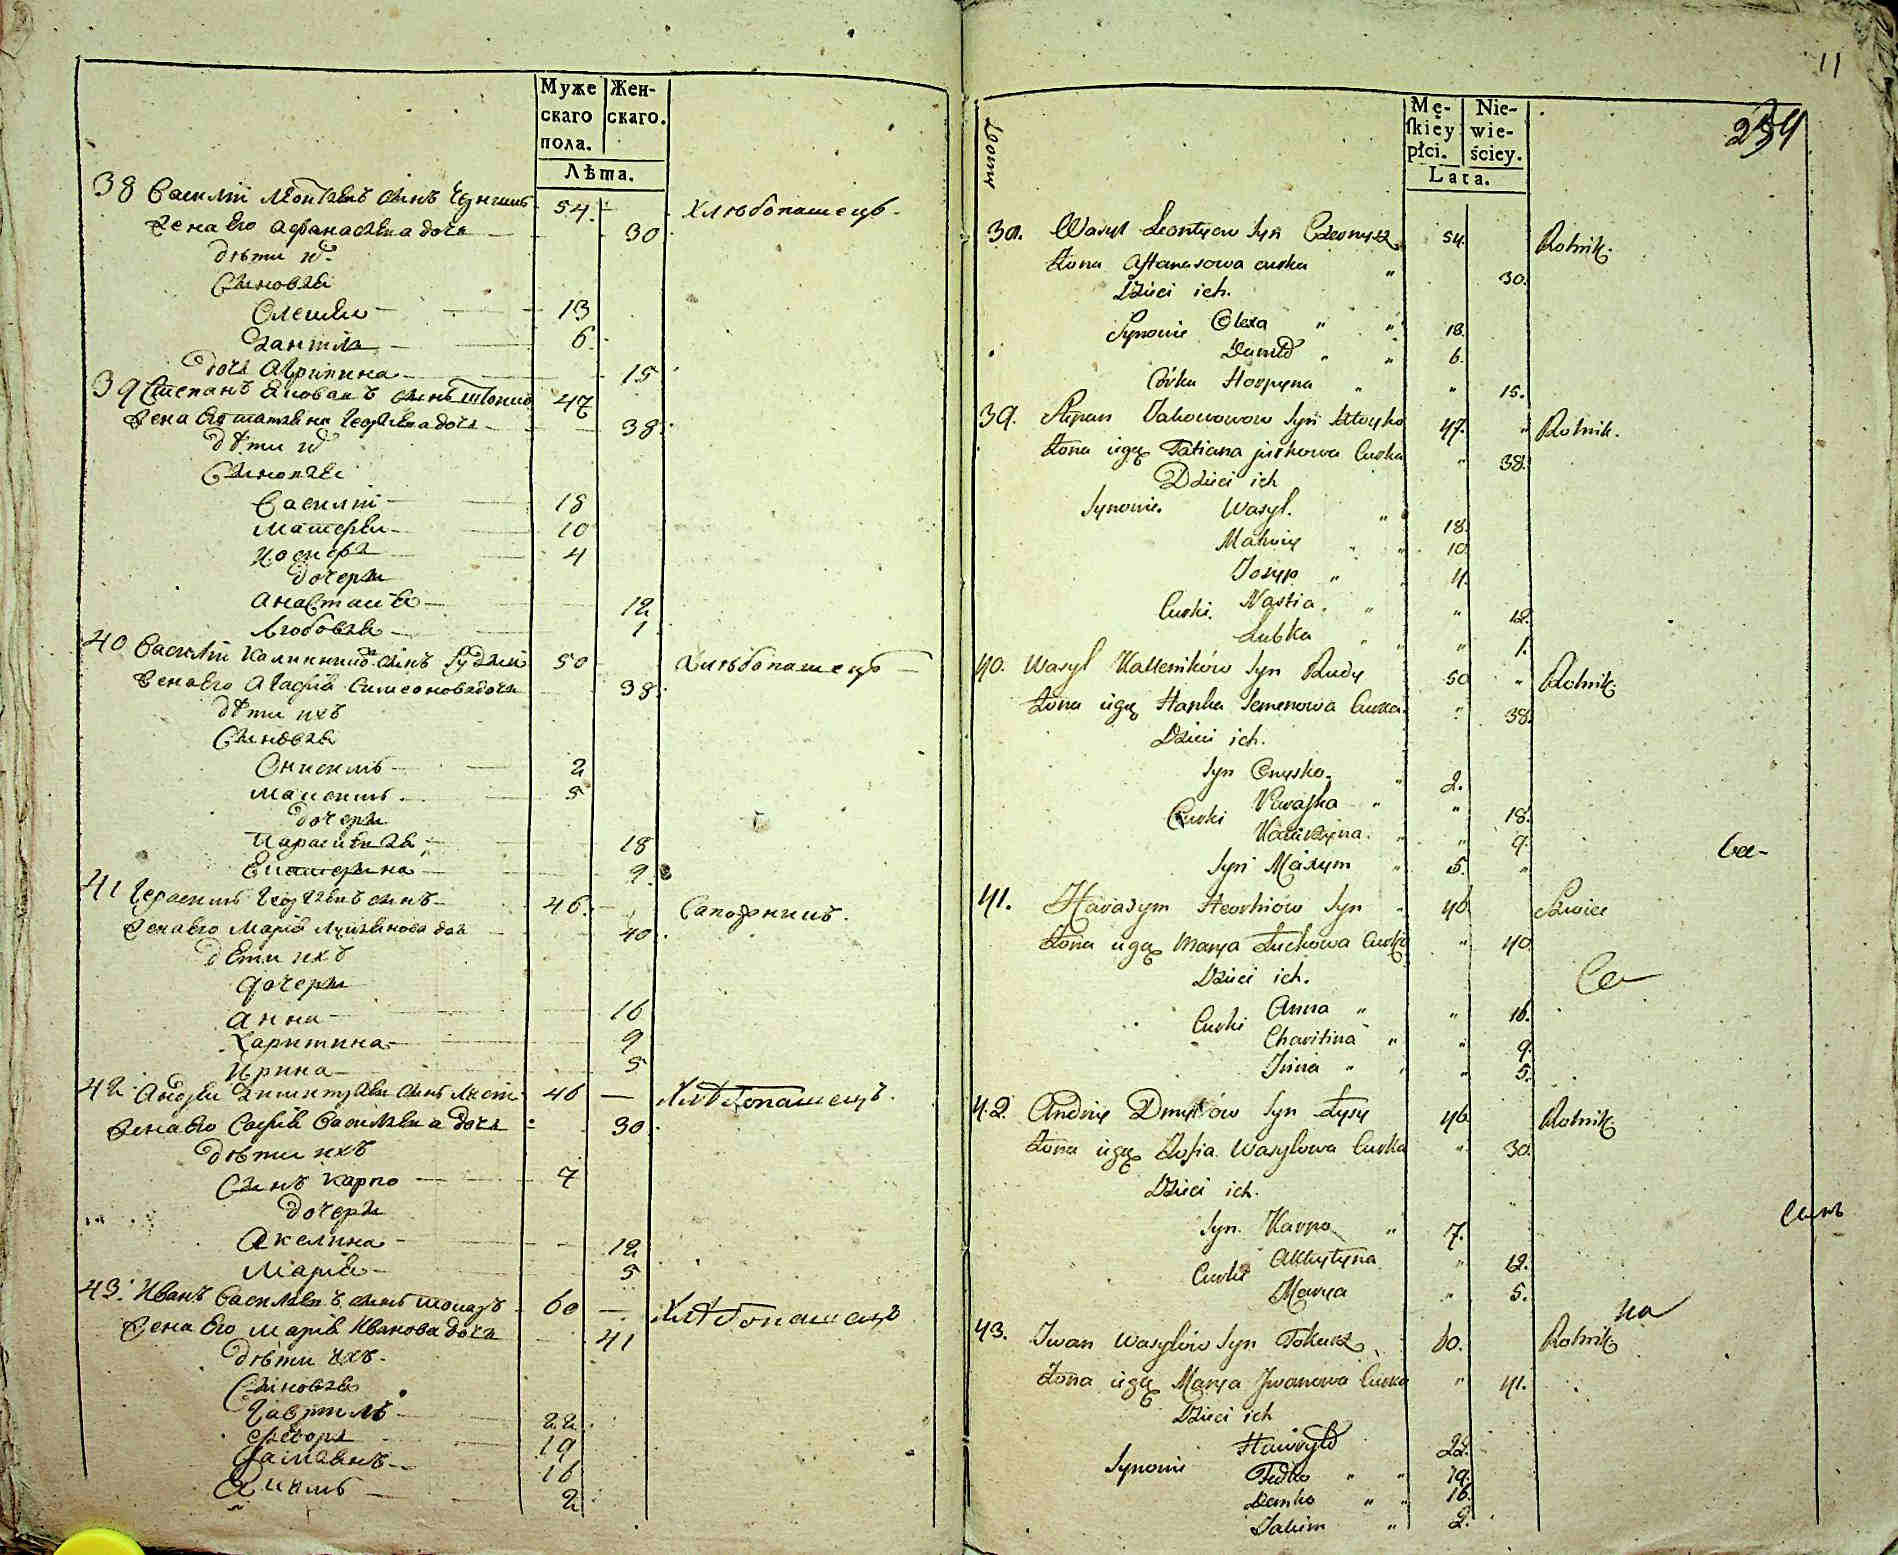 Муже
скаго
пола.
Жен-
скаго.
Лѣта.
38 Василий Леонтиевъ синъ
54
Хлѣбопашець
Жена Его Афанасиева дочь
30
дѣти их
Синовья
Олексии 13
Данило 6
Дочь Агрипина 15
39 Степанъ Яковлевъ синъ
47
Жена Его татияна Георгиева дочь
38
дѣти их
Синовья
Василий 18
Матфей 10
Иосифъ 4
дочери
Анастасия 12
Любовь 1
40 Василий синъ Рудый
50
Хлѣбопашець
Жена Его Агафия Симеонова дочь
38
дѣти ихъ
Синовья
Онисимъ 2
Максимъ 5
дочери
Параскевия 18
Екатерина 9
41 Герасимъ Георгиевъ синъ
46
Сапожникъ
Жена Его Мария дочь
40
дѣти ихъ
дочери
Анна 16
Харитина 9
Ирина 5
42 Андрей Димитриевъ синъ Лисій
46
Хлѣбопашець
Жена Его София Василиева дочь
30
дѣти ихъ
Синъ Карпо 7
дочери
Акелина 12
Мария 5
43 Иванъ Василиевъ синъ токаръ
60
Хлѣбопашець
Жена Его Мария Иванова дочь
41
дѣти ихъ
Синовья
Гавриилъ 22
Феодоръ 19
Дамианъ 16
Якимъ 2
11
254
Domy
Mę-
ſkiéy
płci.
Nie-
wie-
ściey.
Lata.
38. Wasyl Leontyow Syn
54.
Rolnik.
Żona Aftanasowa curka " 30.
Dzieci ich.
Synowie Olexa " " 13.
Daniło " " 6.
Córka Horpyna " " 15.
39. Stepan Jakowowow Syn
47. " Rolnik.
Żona iegę Tatiana Curka " 38.
Dzieci ich
Synowie. Wasyl. " 18.
Matwiy " " 10.
Josyp " " 4.
Curki. Nastia. " " 12.
Lubka " " " 1.
40. Wasyl Kallenikow Syn Rudy
50 " Rolnik.
Żona iegę Hanka Semenowa Curka " 38.
Dzieci ich.
Syn Onysko. " 2.
Curki Paraska " " 18.
Katarzyna. " " 9.
Syn Maxym " 5. "
Са-
41. Harasym Heorhiow Syn " 46. Szwiec
Żona iegę Marya Łuckowa Curka " 40.
Dzieci ich.
Са
Curki Anna " " 16.
Charitina " " 9.
Irina " " " 5.
42. Andriy Dmytrów Syn Łysy
46. Rolnik.
Żona iegę Zofia Wasylowa Curka " 30.
Dzieci ich.
Syn. Karpo " 7.
Curki Akkylyna " 12.
Marya " 5.
на
43. Iwan Wasylów Syn Tokarz
60. Rolnik.
Żona iegę Marya Iwanowa Curka " 41.
Dzieci ich
Synowie Hawryło 22.
Fedko " " 19.
Demko " " 16.
Jakim " 2.